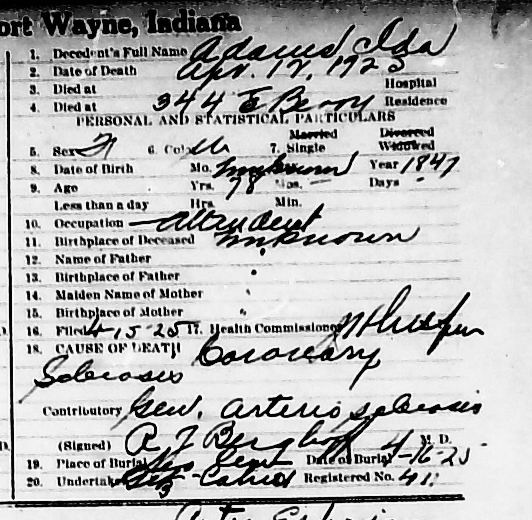 ort Wayne, Indiana
1. Decedent's Full Name Adams Ida
2. Date of Death Apr. 12, 1925
3. Died at Hospital
4. Died at 344 E Berry Residence
PERSONAL AND STATISTICAL PARTICULARS
Married Divorced
5. Sex F 6. Color W 7. Single Widowed
8. Date of Birth Mo. unknown Year 1847
9. Age Yrs. 78 Mos. Days
Less than a day Hrs. Min.
10. Occupation Attendent
11. Birthplace of Deceased unknown
12. Name of Father "
13. Birthplace of Father
14. Maiden Name of Mother "
15. Birthplace of Mother "
16. Filed 4-15-25 17. Health Commissioner
18. CAUSE OF DEATH Coronary
Sclerosis
Contributory Gen. arterio sclerosis
(Signed) R J M. D.
19. Place of Burial Date of Burial 4-16-25
20. Undertaker Registered No. 41